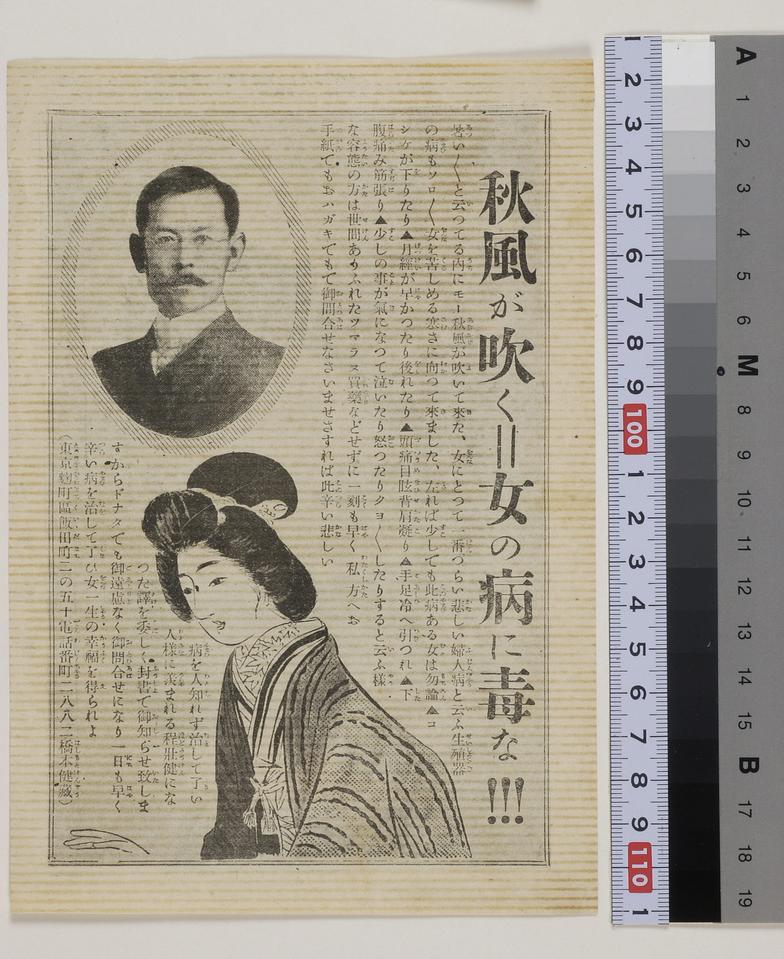 秋風が吹く=女の病に毒な!!!
暑い〳〵と云つてる内にモー秋風が吹いて来た、女にとつて一番つらい悲しい婦人病と云ふ生殖器
の病もソロ〳〵女を苦しめる寒さに向つて來ました、左れば少しても此病ある女は勿論▲コ
シケが下りたり▲月經が早かつたり後れたり▲頭痛目眩背肩凝り▲手足冷へ引つれ▲下
腹痛み筋張り▲少しの事が氣になつて泣いたり怒つたりクヨ〳〵したりすると云ふ樣
な容態の方は世間ありふれたツマラヌ買藥などせずに一刻も早く私し方へお
手紙てもおハガキてもて御問合せなさいませさすれば此辛い悲しい
病を人知れず治して了い
人樣に羨まれる程壯健にな
つた譯を委しく封書て御知らせ致しま
すからドナタても御遠慮なく御問合せになり一日も早く
辛い病を治して了ひ女一生の幸福を得られよ
(東京麹町區飯田町二の五十電話番町二八八二橋本健藏)
1 2 3 4 5 6 7 8 9 100 1 2 3 4 5 6 7 8 9 110 1
A 1 2 3 4 5 6 M 8 9 10 11 12 13 14 15 B 17 18 19